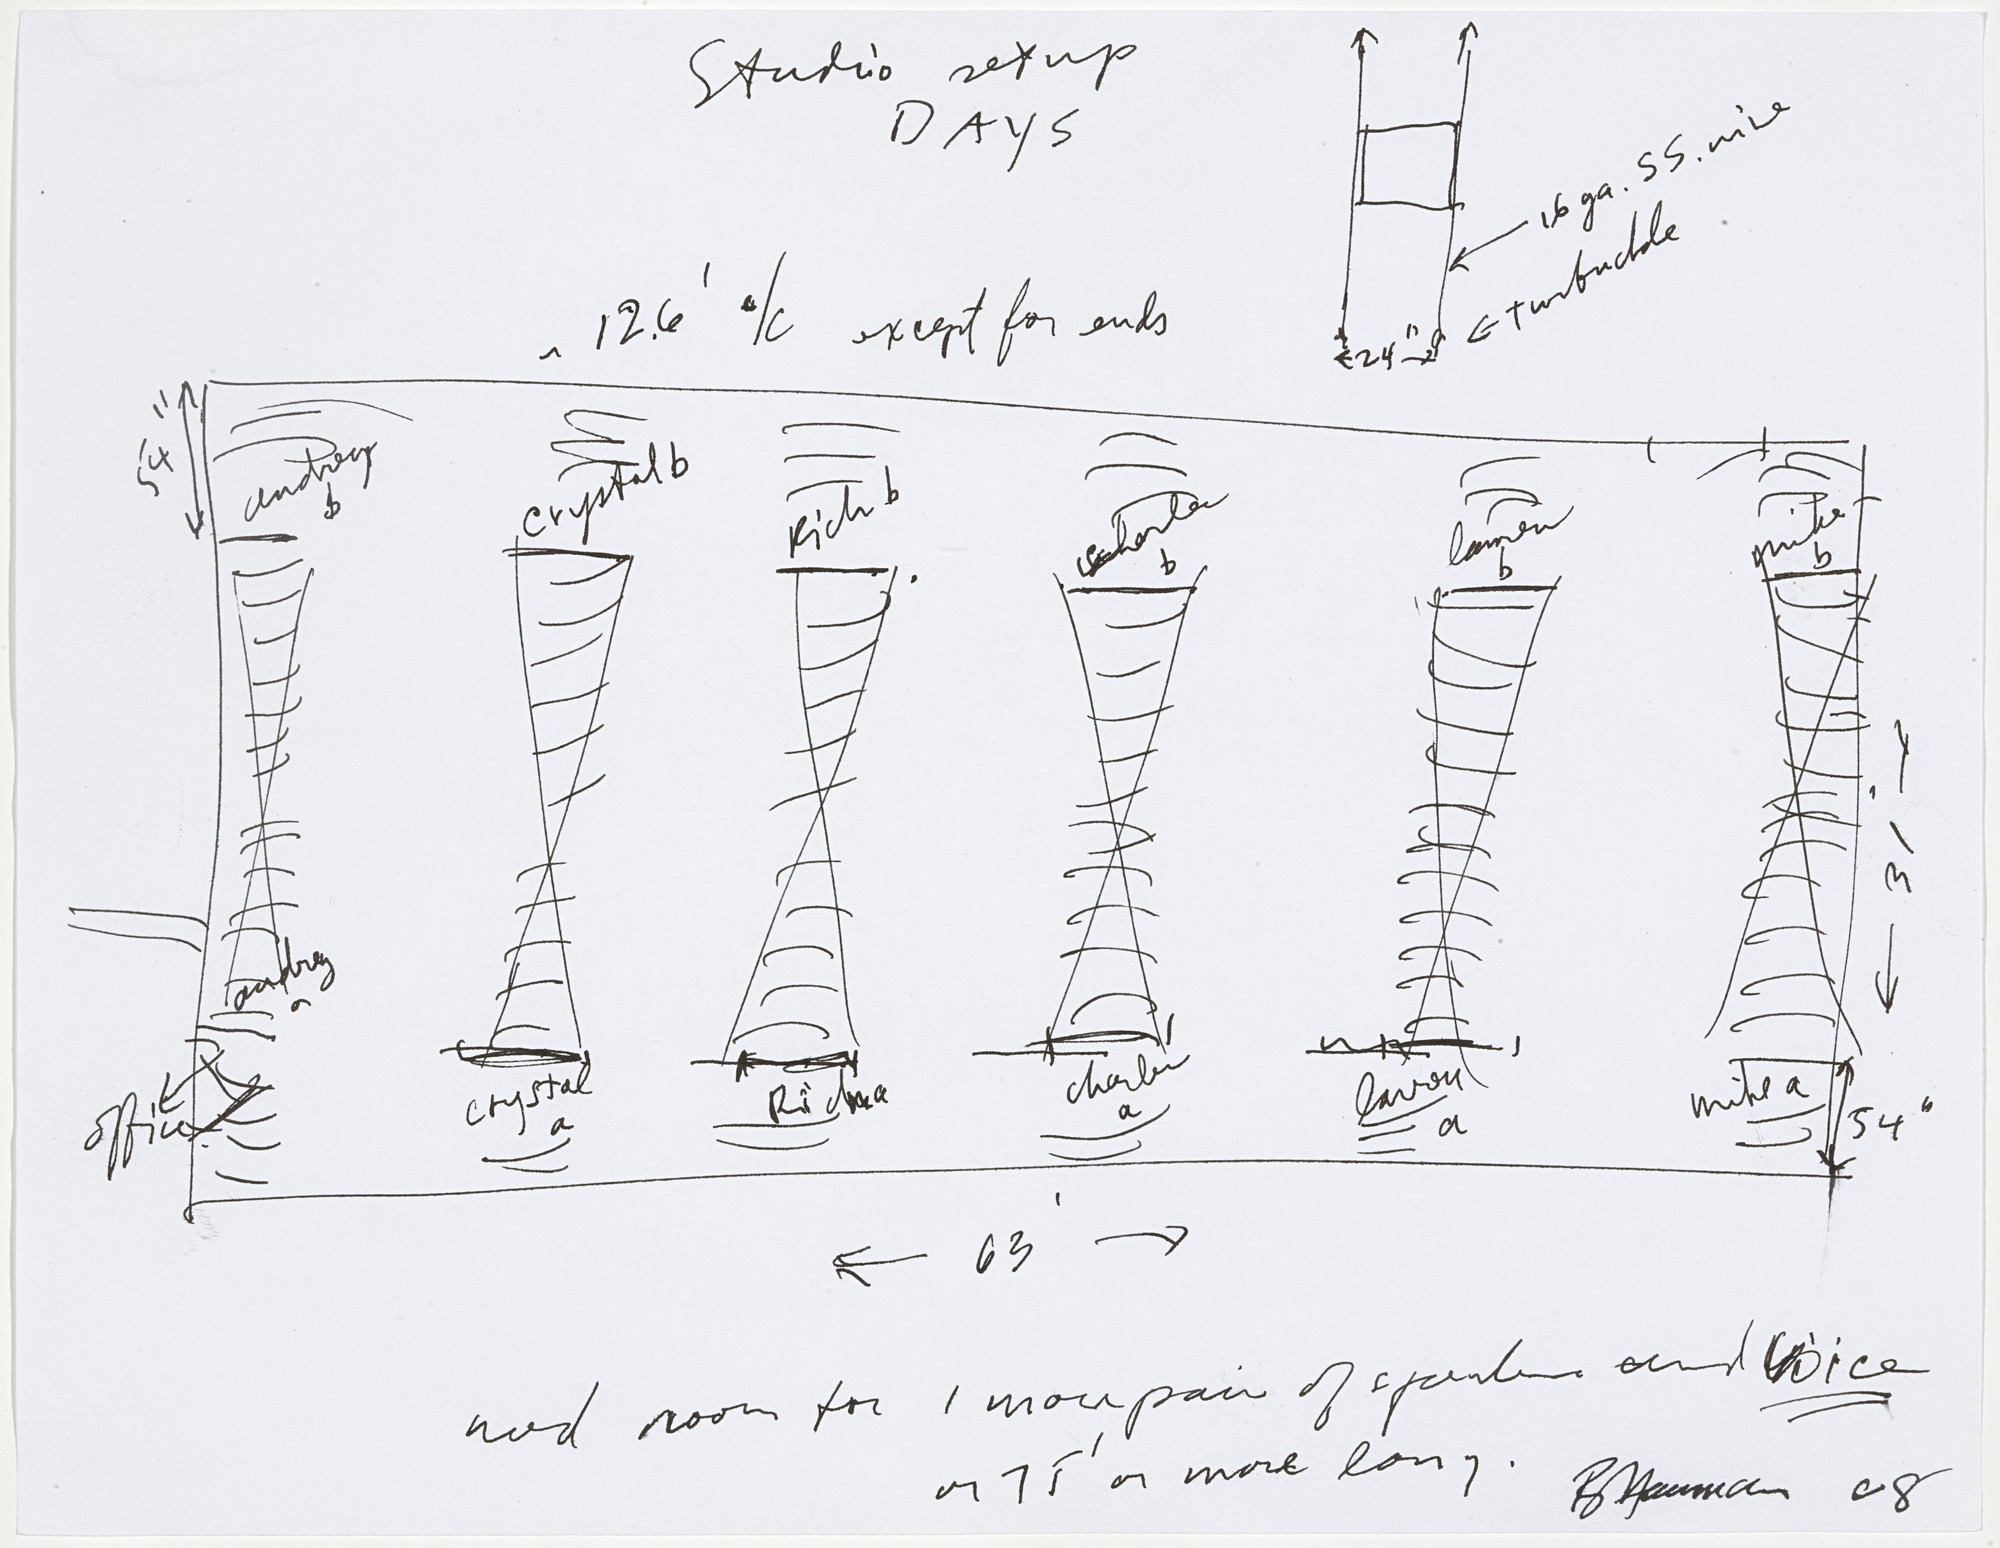 Studio setup
DAYS
16 ga. SS. wire
turnbuckle
24"
~ 12.6' o/c except for ends
54"
andrey
b
crystal b
Rich b
charlen
b
lauren
b
mike
b
31'
andrey
a
office
crystal
a
Rich a
charlen
a
lauren
a
mike a
54"
63'
need room for 1 more pair of speakers and voice
or 75' or more long.
B Nauman 08